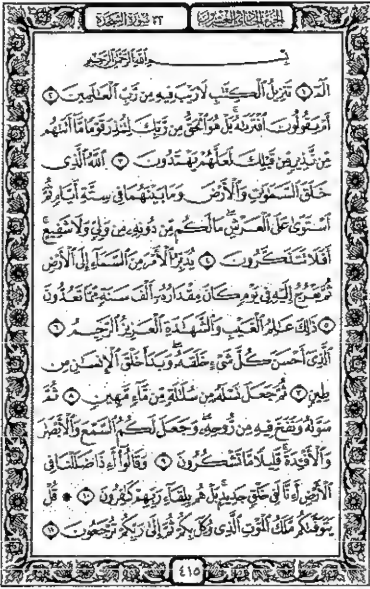 ٣٢ سُورَةُ السَّجْدَةِ
الجُزْءُ الحَادِي وَالعِشْرُونَ
بِسْمِ اللَّهِ الرَّحْمَٰنِ الرَّحِيمِ
الٓمٓ ١ تَنزِيلُ ٱلْكِتَٰبِ لَا رَيْبَ فِيهِ مِن رَّبِّ ٱلْعَٰلَمِينَ ٢
أَمْ يَقُولُونَ ٱفْتَرَىٰهُ بَلْ هُوَ ٱلْحَقُّ مِن رَّبِّكَ لِتُنذِرَ قَوْمًا مَّآ أَتَىٰهُم
مِّن نَّذِيرٍ مِّن قَبْلِكَ لَعَلَّهُمْ يَهْتَدُونَ ٣ ٱللَّهُ ٱلَّذِى
خَلَقَ ٱلسَّمَٰوَٰتِ وَٱلْأَرْضَ وَمَا بَيْنَهُمَا فِى سِتَّةِ أَيَّامٍ ثُمَّ
ٱسْتَوَىٰ عَلَى ٱلْعَرْشِ مَا لَكُم مِّن دُونِهِۦ مِن وَلِىٍّ وَلَا شَفِيعٍ
أَفَلَا تَتَذَكَّرُونَ ٤ يُدَبِّرُ ٱلْأَمْرَ مِنَ ٱلسَّمَآءِ إِلَى ٱلْأَرْضِ
ثُمَّ يَعْرُجُ إِلَيْهِ فِى يَوْمٍ كَانَ مِقْدَارُهُۥٓ أَلْفَ سَنَةٍ مِّمَّا تَعُدُّونَ
٥ ذَٰلِكَ عَٰلِمُ ٱلْغَيْبِ وَٱلشَّهَٰدَةِ ٱلْعَزِيزُ ٱلرَّحِيمُ ٦
ٱلَّذِىٓ أَحْسَنَ كُلَّ شَىْءٍ خَلَقَهُۥ وَبَدَأَ خَلْقَ ٱلْإِنسَٰنِ مِن
طِينٍ ٧ ثُمَّ جَعَلَ نَسْلَهُۥ مِن سُلَٰلَةٍ مِّن مَّآءٍ مَّهِينٍ ٨ ثُمَّ
سَوَّىٰهُ وَنَفَخَ فِيهِ مِن رُّوحِهِۦ وَجَعَلَ لَكُمُ ٱلسَّمْعَ وَٱلْأَبْصَٰرَ
وَٱلْأَفْـِٔدَةَ قَلِيلًا مَّا تَشْكُرُونَ ٩ وَقَالُوٓا۟ أَءِذَا ضَلَلْنَا فِى
ٱلْأَرْضِ أَءِنَّا لَفِى خَلْقٍ جَدِيدٍۭ بَلْ هُم بِلِقَآءِ رَبِّهِمْ كَٰفِرُونَ ١٠ ۞ قُلْ
يَتَوَفَّىٰكُم مَّلَكُ ٱلْمَوْتِ ٱلَّذِى وُكِّلَ بِكُمْ ثُمَّ إِلَىٰ رَبِّكُمْ تُرْجَعُونَ ١١
٤١٥